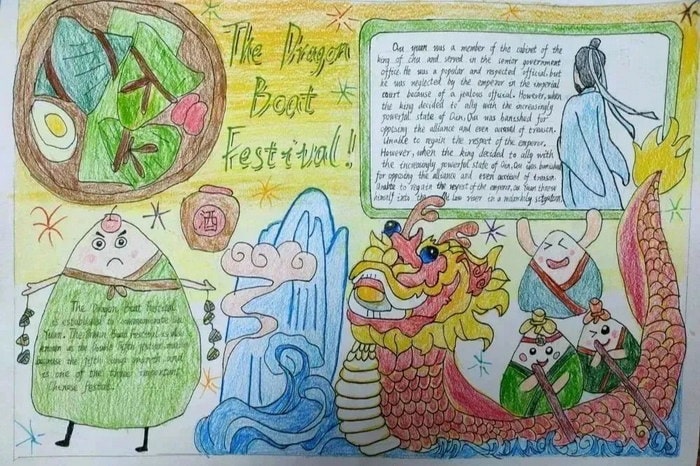 The Dragon
Boat
Festival!
Qu yuan was a member of the cabinet of the
king of chu and served in the senior government
office. He was a popular and respected official, but
he was neglected by the emperor in the imperial
court because of a jealous official. However, when
the king decided to ally with the increasingly
powerful state of Qin, Qu was banished for
opposing the alliance and even accused of treason.
Unable to regain the respect of the emperor.
However, when the king decided to ally with
the increasingly powerful state of Qin, Qu was banished
for opposing the alliance and even accused of treason.
Unable to regain the respect of the emperor, Qu Yuan threw
himself into the Mi Luo river in a
酒
The Dragon Boat Festival
is established to commemorate Qu
Yuan. The Dragon Boat Festival is also
known as the Double Fifth
because the fifth lunar month and
is one of the three important
Chinese festival.